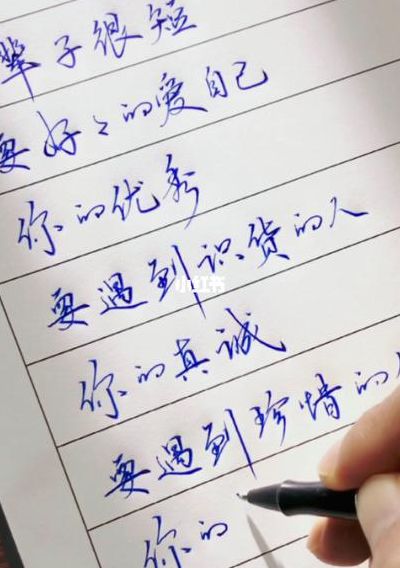 辈子很短
要好々的爱自己
你的优秀
要遇到识货的人
小红书
你的真诚
要遇到珍惜的人
你的